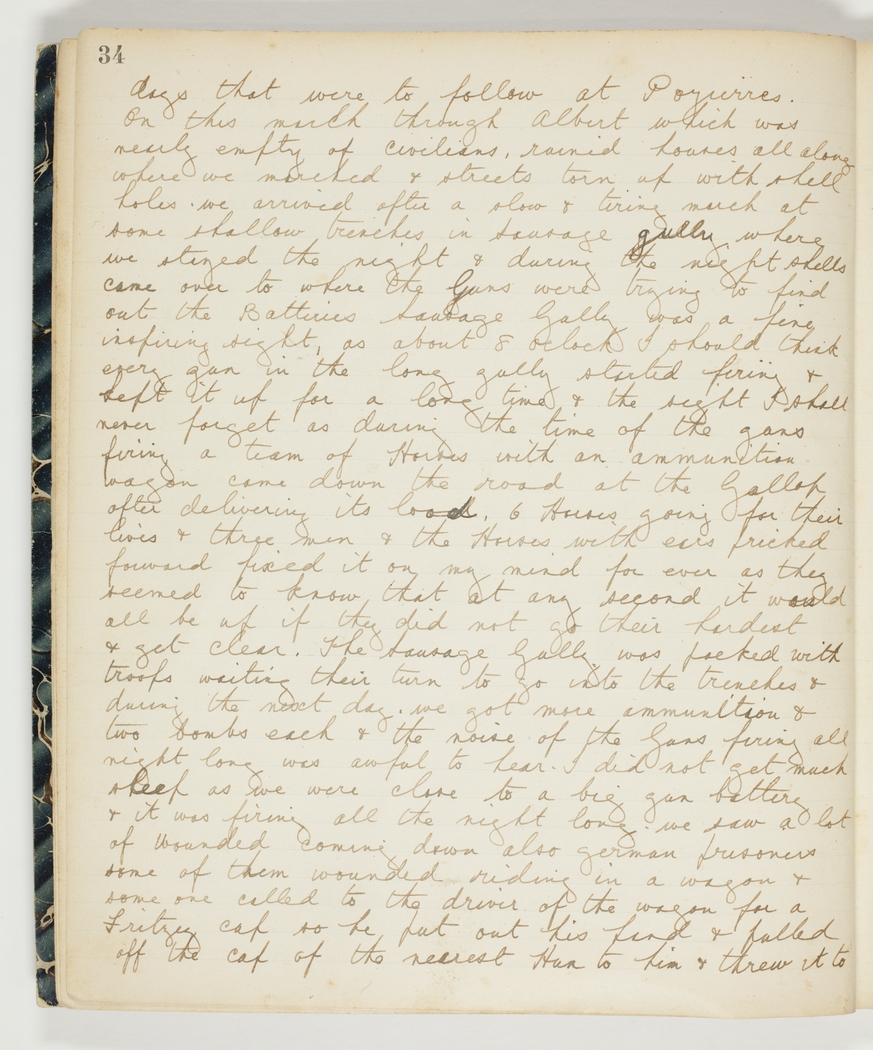 34
days that were to follow at Poyierres.
On this march through Albert which was
nearly empty of civilians, ruined houses all along
where we marched & streets torn up with shell
holes. we arrived after a slow & tiring march at
some shallow trenches in sausage gully where
we stayed the night & during the night shells
came over to where the Guns were trying to find
out the Batteries Sausage Gully was a fine
inspiring sight, as about 8 oclock I should think
every gun in the long gully started firing &
kept it up for a long time & the sight I shall
never forget as during the time of the guns
firing a team of Horses with an ammunition
wagon came down the road at the Gallop
after delivering its load, 6 Horses going for their
lives & three men & the Horses with ears pricked
forward fixed it on my mind for ever as they
seemed to know that at any second it would
all be up if they did not go their hardest
& get clear. The Sausage Gully was packed with
troops waiting their turn to go into the trenches &
during the next day. we got more ammunition &
two bombs each & the noise of the Guns firing all
night long was awful to hear. I did not get much
sleep as we were close to a big gun battery
& it was firing all the night long. we saw a lot
of wounded coming down also german prisoners
some of them wounded riding in a wagon &
some one called to the driver of the wagon for a
Fritzey cap so he put out his hand & pulled
off the cap of the nearest Hun to him & threw it to